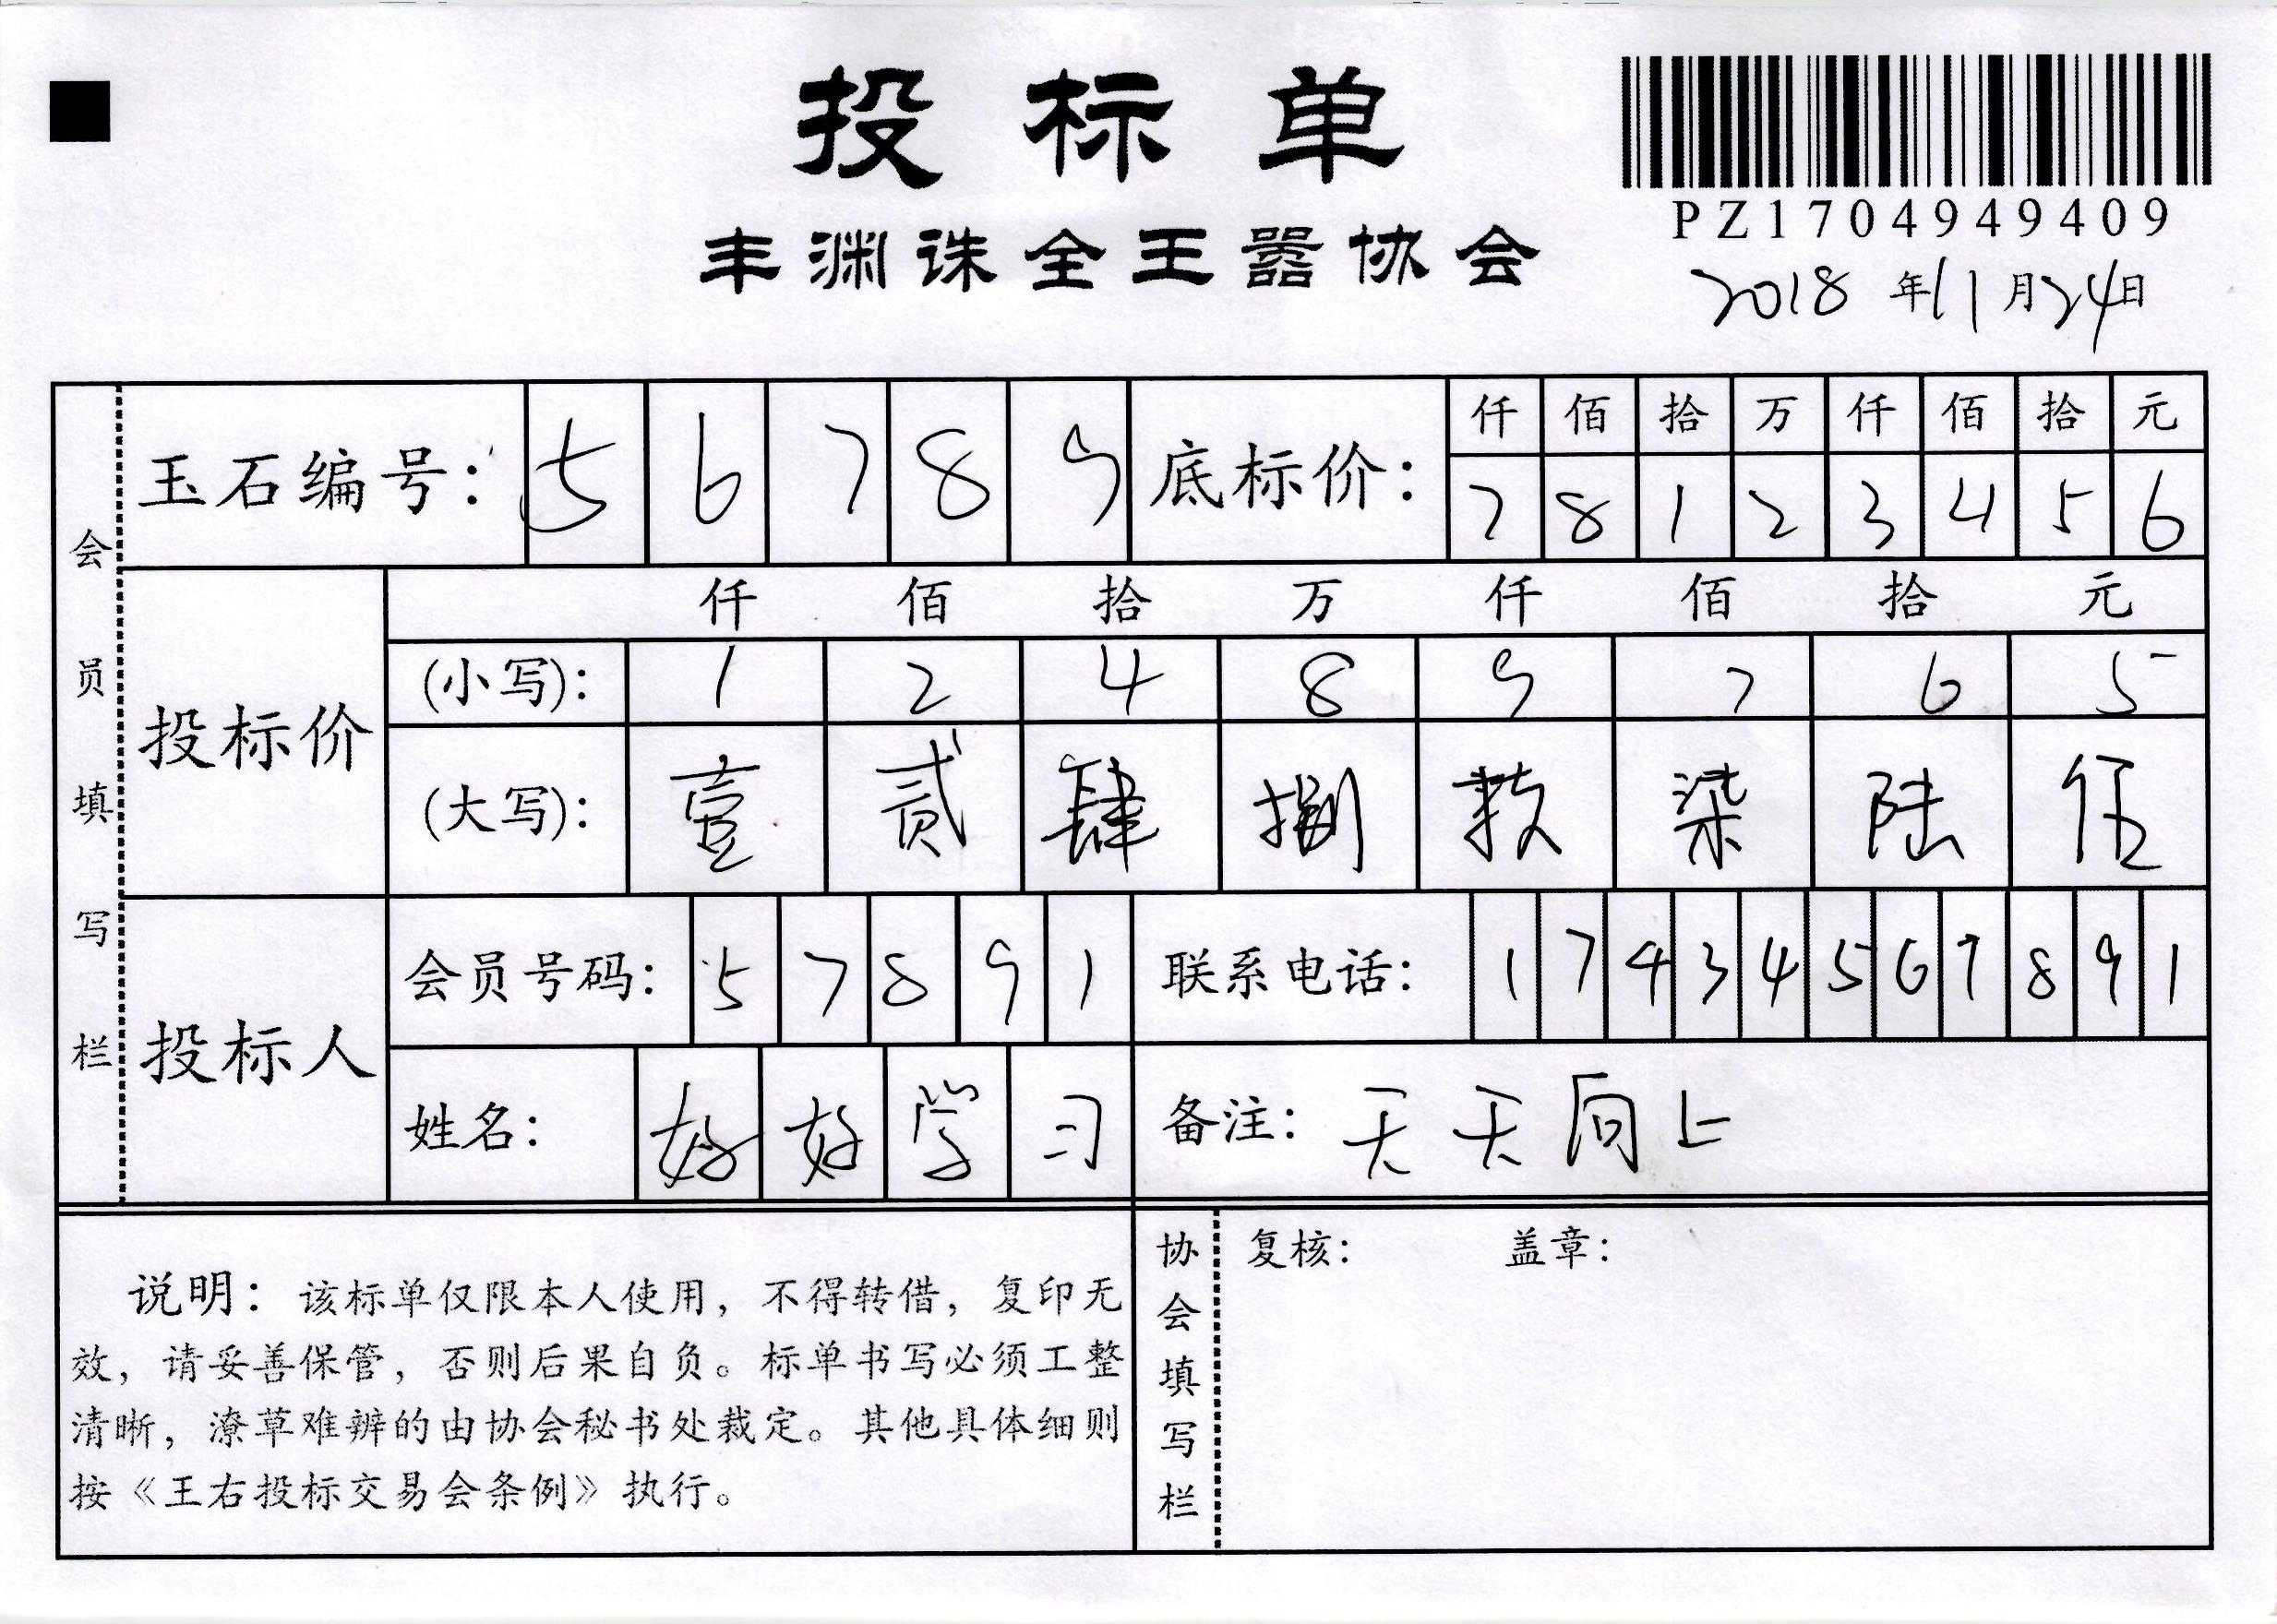 投标单
PZ1704949409
丰渊诛全王嚣协会
2018年11月24日
会员填写栏
玉石编号: 5 6 7 8 9
底标价: 仟 佰 拾 万 仟 佰 拾 元
7 8 1 2 3 4 5 6
投标价
仟 佰 拾 万 仟 佰 拾 元
(小写): 1 2 4 8 9 7 6 5
(大写): 壹 贰 肆 捌 玖 柒 陆 伍
投标人
会员号码: 5 7 8 9 1
联系电话: 1 7 4 3 4 5 6 7 8 9 1
姓名: 好 好 学 习
备注: 天天向上
说明：该标单仅限本人使用，不得转借，复印无
效，请妥善保管，否则后果自负。标单书写必须工整
清晰，潦草难辨的由协会秘书处裁定。其他具体细则
按《王右投标交易会条例》执行。
协会填写栏
复核: 盖章: